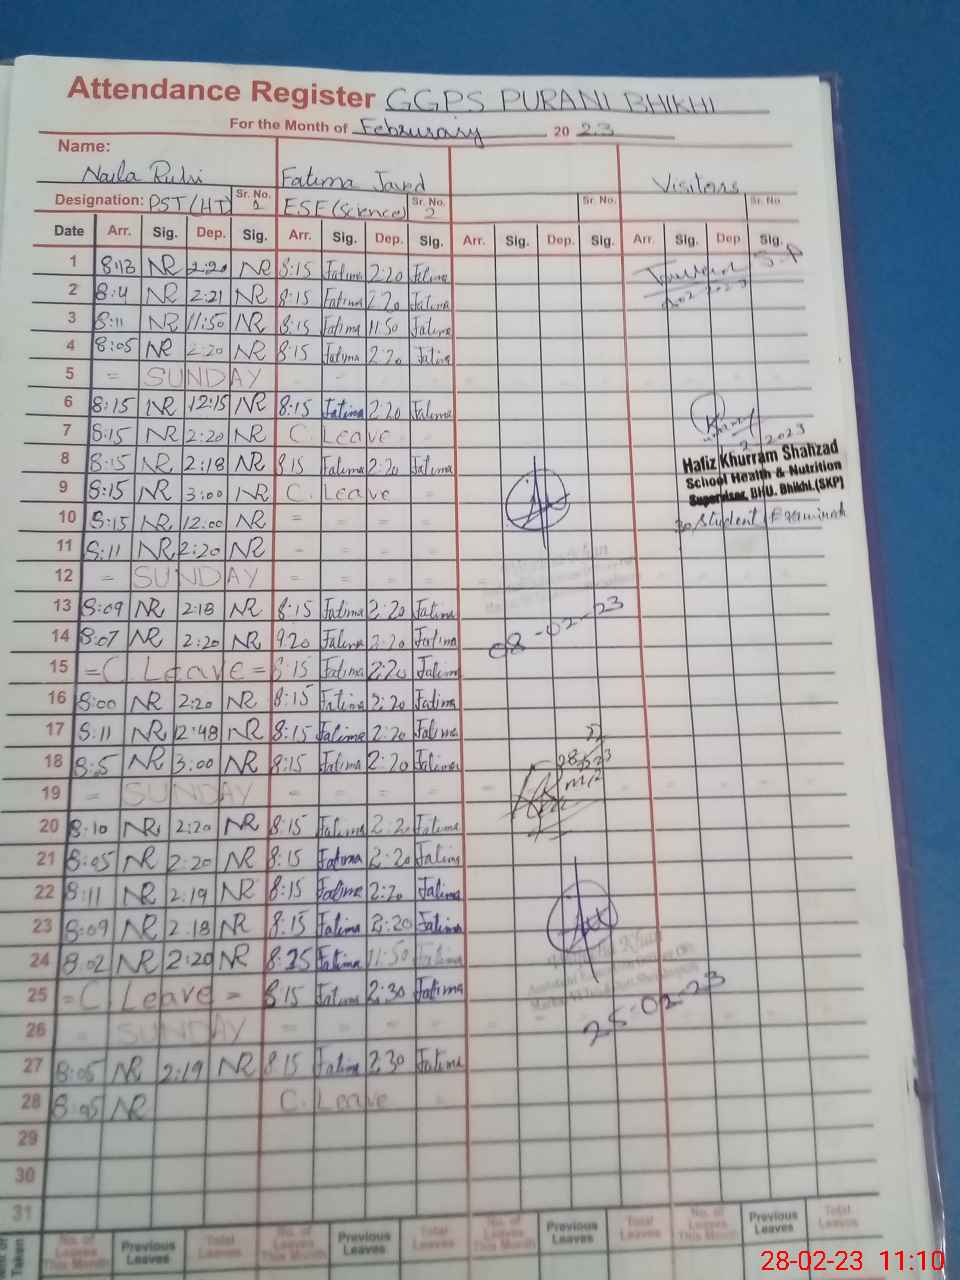 Attendance Register GGPS PURANI BHIKHI
For the Month of February 20 23
Name:
Naila Ruhi Fatima Javed Visitors
Designation: PST (HT) Sr. No. 1 ESE (Science) Sr. No. 2 Sr. No. Sr. No.
Date Arr. Sig. Dep. Sig. Arr. Sig. Dep. Sig. Arr. Sig. Dep. Sig. Arr. Sig. Dep Sig.
1 8:13 NR 2:20 NR 8:15 Fatima 2:20 Fatima
2 NR 2:21 NR 8:15 Fatima 2:20 Fatima
3 8:11 NR 11:50 NR 8:15 Fatima 11:50 Fatima
4 8:05 NR 2:20 NR 8:15 Fatima 2:20 Fatima
5 = SUNDAY
6 8:15 NR 12:15 NR 8:15 Fatima 2:20 Fatima
7 8:15 NR 2:20 NR C. Leave
8 8:15 NR 2:18 NR 8:15 Fatima 2:20 Fatima
Hafiz Khurram Shahzad
School Health & Nutrition
Supervisor, BHU. Bhikhi.(SKP)
9 8:15 NR 3:00 NR C. Leave
10 8:15 NR 12:00 NR = = = =
30 Student Examined
11 8:11 NR 2:20 NR - = = =
12 = SUNDAY = = = =
13 8:09 NR 2:18 NR 8:15 Fatima 2:20 Fatima
08-02-23
14 8:07 NR 2:20 NR 9:20 Fatima 2:20 Fatima
15 = C Leave = 8:15 Fatima 2:20 Fatima
16 8:00 NR 2:20 NR 8:15 Fatima 2:20 Fatima
17 8:11 NR 2:48 NR 8:15 Fatima 2:20 Fatima
18 8:5 NR 3:00 NR 8:15 Fatima 2:20 Fatima
19 = SUNDAY - = = =
20 8:10 NR 2:20 NR 8:15 Fatima 2:20 Fatima
21 8:05 NR 2:20 NR 8:15 Fatima 2:20 Fatima
22 8:11 NR 2:19 NR 8:15 Fatima 2:20 Fatima
23 8:09 NR 2:18 NR 8:15 Fatima 2:20 Fatima
24 8:02 NR 2:20 NR 8:25 Fatima 11:50 Fatima
25 = C Leave = 8:15 Fatima 2:30 Fatima
25-02-23
26 = SUNDAY = = = =
27 8:05 NR 2:19 NR 8:15 Fatima 2:30 Fatima
28 8:05 NR C. Leave
29
30
31
No. of Leaves This Month Previous Leaves Total Leaves No. of Leaves This Month Previous Leaves Total Leaves No. of Leaves This Month Previous Leaves Total Leaves No. of Leaves This Month Previous Leaves Total Leaves
28-02-23 11:10